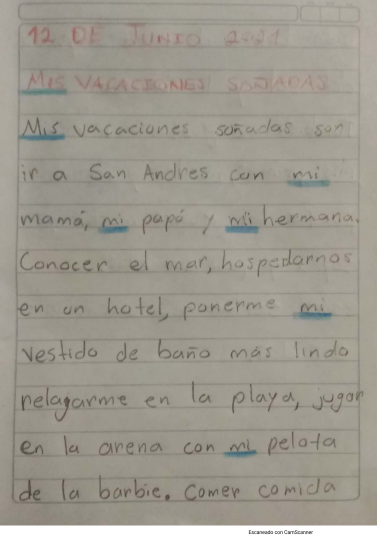 12 DE JUNIO 2021
MIS VACACIONES SOÑADAS
Mis vacaciones soñadas son
ir a San Andres con mi
mamá, mi papá y mi hermana.
Conocer el mar, hospedarnos
en un hotel, ponerme mi
vestido de baño más lindo
relagarme en la playa, jugar
en la arena con mi pelota
de la barbie. Comer comida
Escaneado con CamScanner